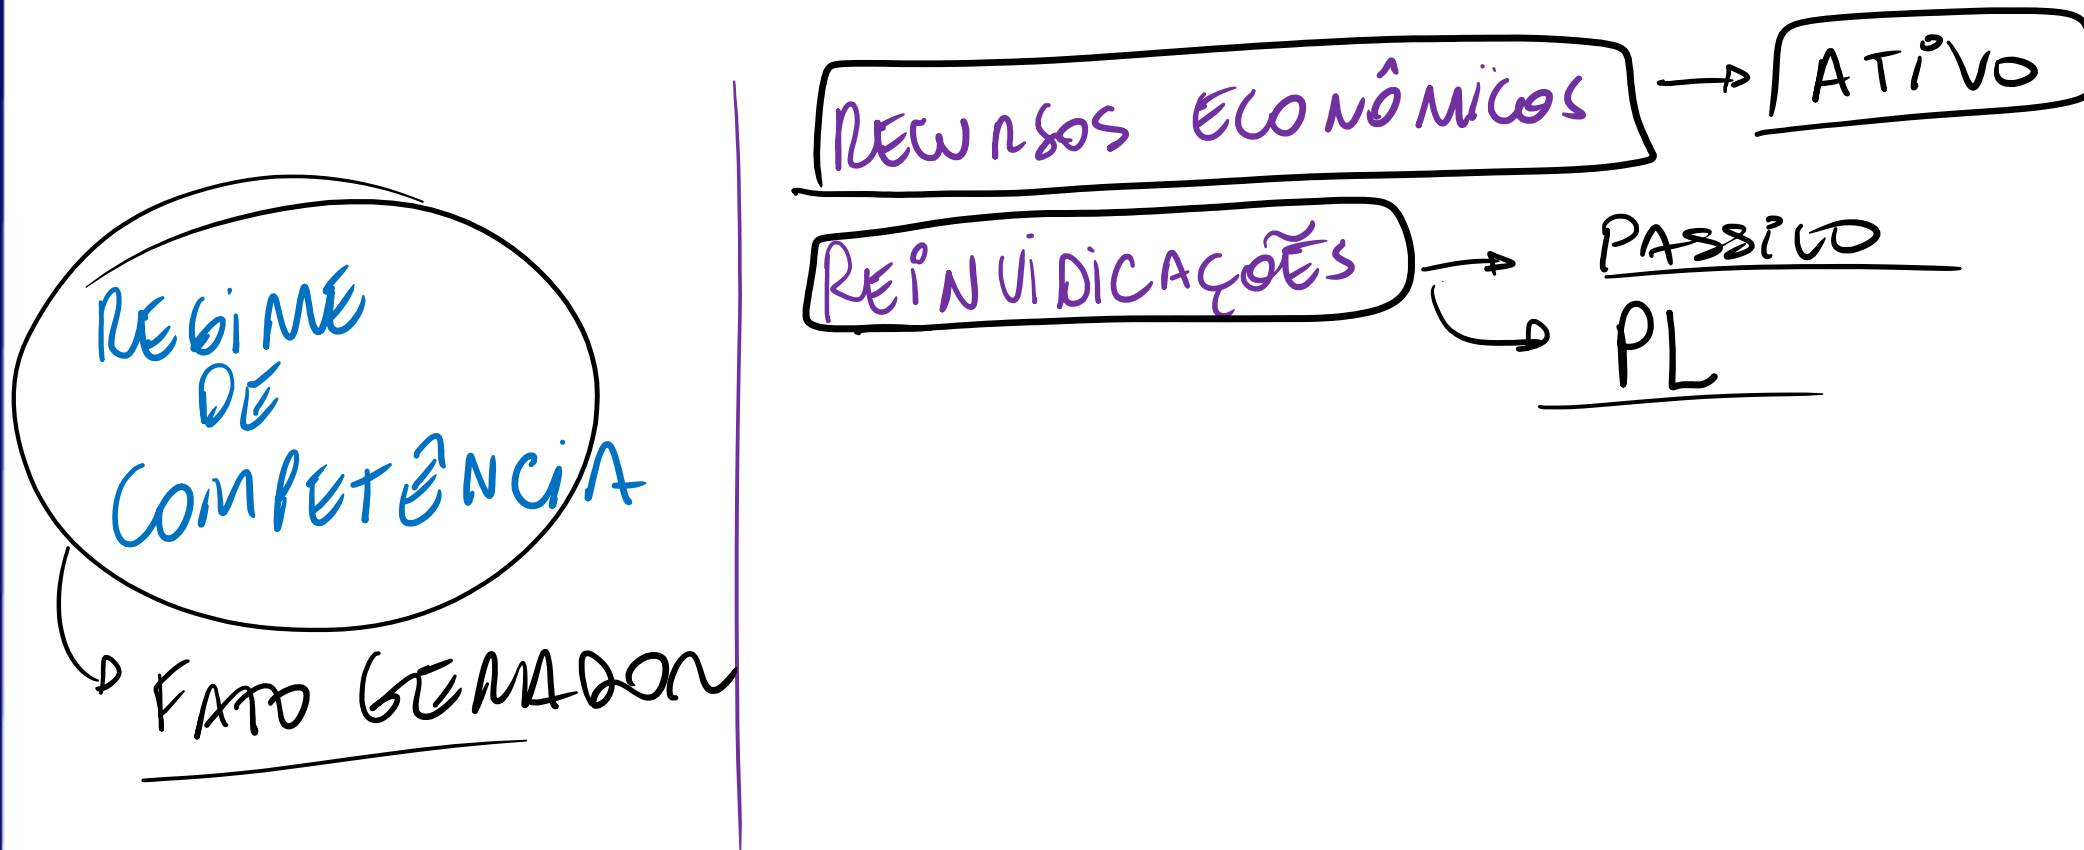 REGIME
DE
COMPETÊNCIA
FATO GERADOR
RECURSOS ECONÔMICOS → ATIVO
REINVIDICAÇÕES → PASSIVO
PL